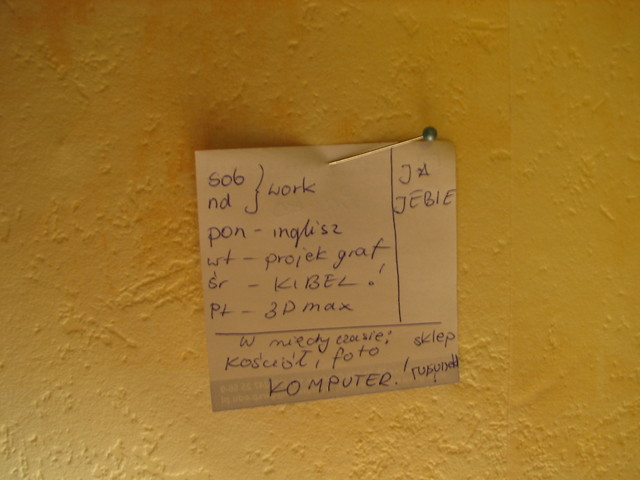 sob
nd } work
pon - inglisz
wt - projek graf
śr - KIBEL !
pt - 3D max
JA
JEBIE
w międzyczasie: sklep
kościół, foto
KOMPUTER.